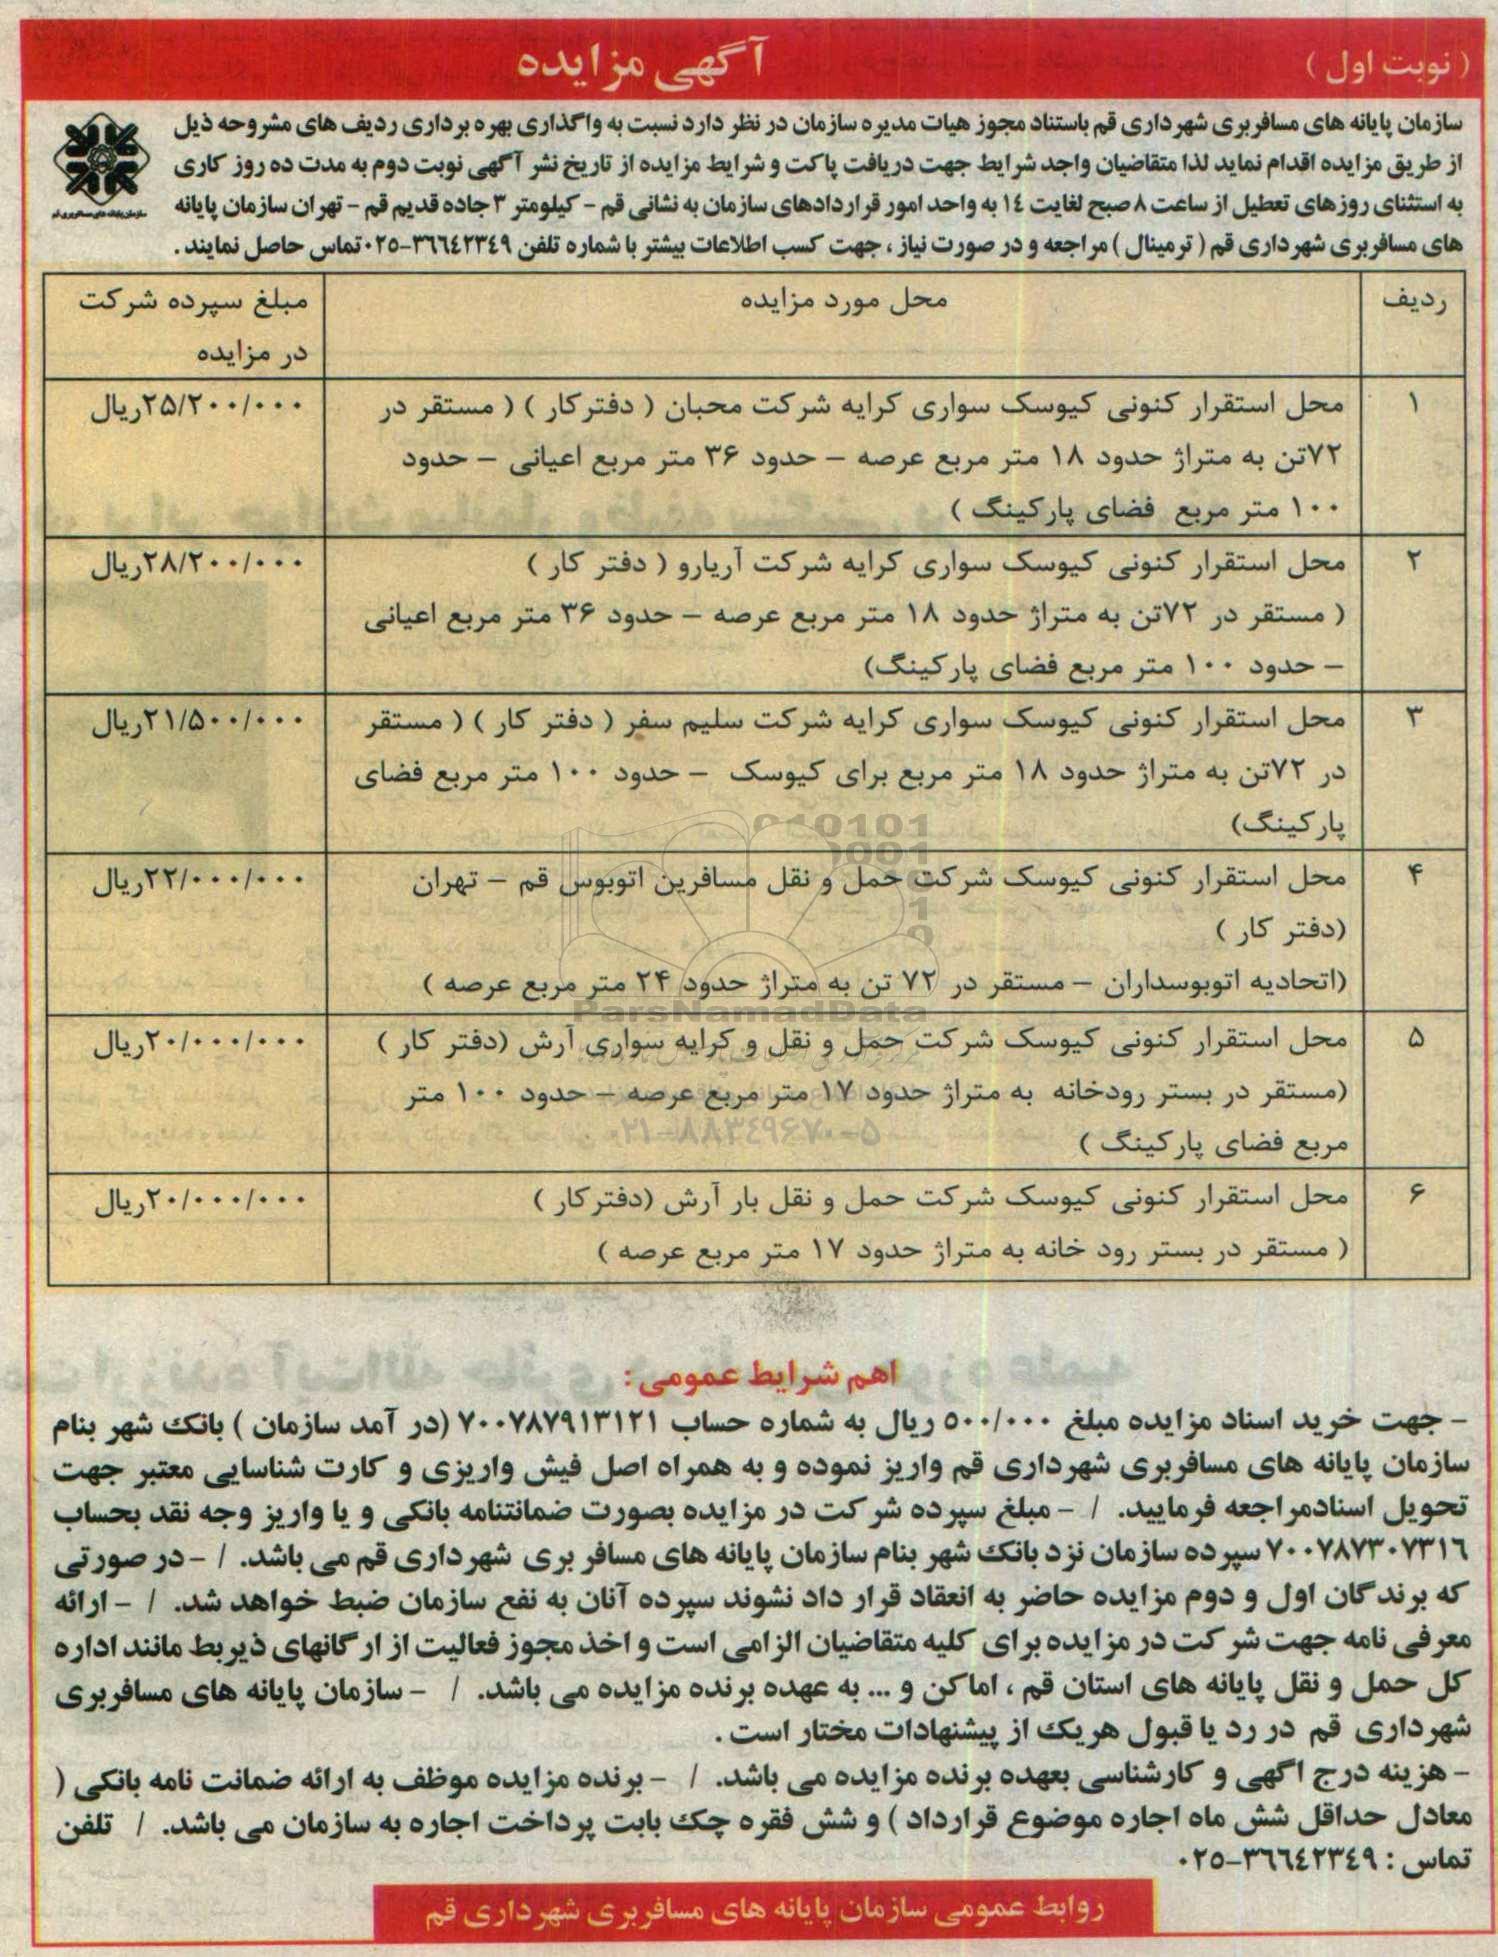 ( نوبت اول )
آگهی مزایده
سازمان پایانه های مسافربری شهرداری قم باستناد مجوز هیات مدیره سازمان در نظر دارد نسبت به واگذاری بهره برداری ردیف های مشروحه ذیل
از طریق مزایده اقدام نماید لذا متقاضیان واجد شرایط جهت دریافت پاکت و شرایط مزایده از تاریخ نشر آگهی نوبت دوم به مدت ده روز کاری
به استثنای روزهای تعطیل از ساعت ۸ صبح لغایت ۱۴ به واحد امور قراردادهای سازمان به نشانی قم - کیلومتر ۳ جاده قدیم قم - تهران سازمان پایانه
های مسافربری شهرداری قم ( ترمینال ) مراجعه و در صورت نیاز ، جهت کسب اطلاعات بیشتر با شماره تلفن ۳۶۶۴۲۳۴۹-۰۲۵ تماس حاصل نمایند .
سازمان پایانه های مسافربری قم
ردیف
محل مورد مزایده
مبلغ سپرده شرکت
در مزایده
۱
محل استقرار کنونی کیوسک سواری کرایه شرکت محبان ( دفترکار ) ( مستقر در
۷۲تن به متراژ حدود ۱۸ متر مربع عرصه – حدود ۳۶ متر مربع اعیانی – حدود
۱۰۰ متر مربع فضای پارکینگ )
۲۵/۲۰۰/۰۰۰ریال
۲
محل استقرار کنونی کیوسک سواری کرایه شرکت آریارو ( دفتر کار )
( مستقر در ۷۲تن به متراژ حدود ۱۸ متر مربع عرصه – حدود ۳۶ متر مربع اعیانی
– حدود ۱۰۰ متر مربع فضای پارکینگ)
۲۸/۲۰۰/۰۰۰ریال
۳
محل استقرار کنونی کیوسک سواری کرایه شرکت سلیم سفر ( دفتر کار ) ( مستقر
در ۷۲تن به متراژ حدود ۱۸ متر مربع برای کیوسک – حدود ۱۰۰ متر مربع فضای
پارکینگ)
۲۱/۵۰۰/۰۰۰ریال
۴
محل استقرار کنونی کیوسک شرکت حمل و نقل مسافرین اتوبوس قم – تهران
(دفتر کار )
(اتحادیه اتوبوسداران – مستقر در ۷۲ تن به متراژ حدود ۲۴ متر مربع عرصه )
۲۲/۰۰۰/۰۰۰ریال
۵
محل استقرار کنونی کیوسک شرکت حمل و نقل و کرایه سواری آرش (دفتر کار )
(مستقر در بستر رودخانه به متراژ حدود ۱۷ متر مربع عرصه – حدود ۱۰۰ متر
مربع فضای پارکینگ )
۲۰/۰۰۰/۰۰۰ریال
۶
محل استقرار کنونی کیوسک شرکت حمل و نقل بار آرش (دفترکار )
( مستقر در بستر رود خانه به متراژ حدود ۱۷ متر مربع عرصه )
۲۰/۰۰۰/۰۰۰ریال
ParsNamadData
۰۲۱-۸۸۳۴۹۶۷۰-۵
اهم شرایط عمومی :
- جهت خرید اسناد مزایده مبلغ ۵۰۰/۰۰۰ ریال به شماره حساب ۷۰۰۷۸۷۹۱۳۱۲۱ (در آمد سازمان ) بانک شهر بنام
سازمان پایانه های مسافربری شهرداری قم واریز نموده و به همراه اصل فیش واریزی و کارت شناسایی معتبر جهت
تحویل اسنادمراجعه فرمایید. / - مبلغ سپرده شرکت در مزایده بصورت ضمانتنامه بانکی و یا واریز وجه نقد بحساب
۷۰۰۷۸۷۳۰۷۳۱۶ سپرده سازمان نزد بانک شهر بنام سازمان پایانه های مسافر بری شهرداری قم می باشد. / - در صورتی
که برندگان اول و دوم مزایده حاضر به انعقاد قرار داد نشوند سپرده آنان به نفع سازمان ضبط خواهد شد. / - ارائه
معرفی نامه جهت شرکت در مزایده برای کلیه متقاضیان الزامی است و اخذ مجوز فعالیت از ارگانهای ذیربط مانند اداره
کل حمل و نقل پایانه های استان قم ، اماکن و ... به عهده برنده مزایده می باشد. / - سازمان پایانه های مسافربری
شهرداری قم در رد یا قبول هریک از پیشنهادات مختار است .
- هزینه درج اگهی و کارشناسی بعهده برنده مزایده می باشد. / - برنده مزایده موظف به ارائه ضمانت نامه بانکی (
معادل حداقل شش ماه اجاره موضوع قرارداد ) و شش فقره چک بابت پرداخت اجاره به سازمان می باشد. / تلفن
تماس : ۳۶۶۴۲۳۴۹-۰۲۵
روابط عمومی سازمان پایانه های مسافربری شهرداری قم